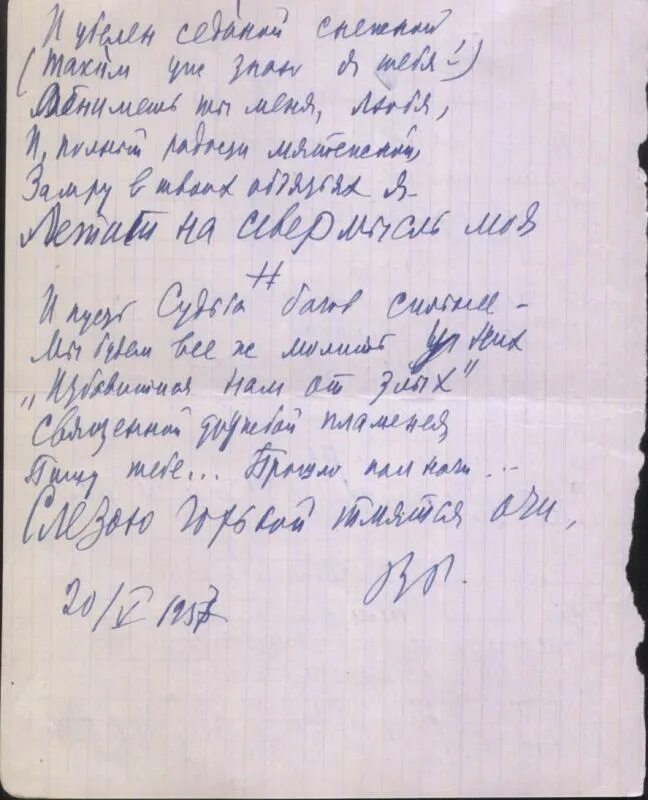 И убелен сединой снежной
(Таким уж знаю я тебя!)
Обнимешь ты меня, любя,
И, полный радости мятежной,
Замру в твоих объятьях я.
Летит на север мысль моя
И пусть Судьба богов сильнее –
Мы будем все ж молить у них
„Избавиться нам от злых"
Священной дружбой пламенея
Пишу тебе... Прошло пол ночи...
Слезою горькой тмятся очи,
20/V 1957